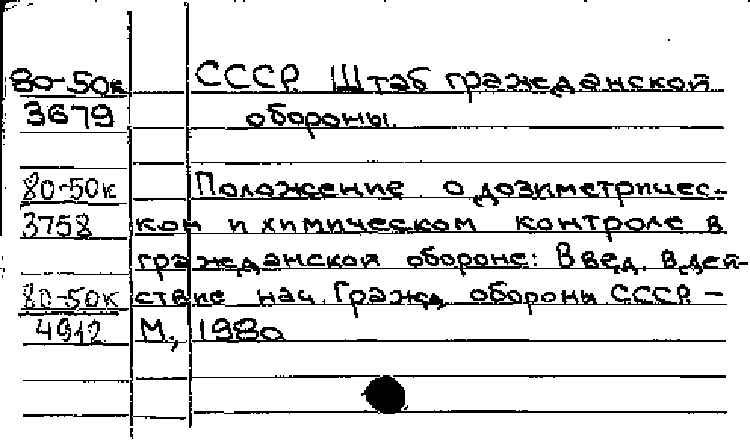 80-50к СССР. Штаб гражданской
3679 обороны.
80-50к Положение о дозиметричес-
3758 ком и химическом контроле в
гражданской обороне: Введ. в дей-
80-50к ствие нач. Гражд. обороны СССР. –
4912 М., 1980